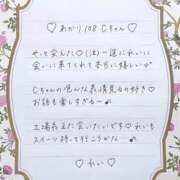 ♡ あかり 108 Cちゃん ♡
やっと会えた♡(泣)一途にれいに
会いに来てくれて本当に嬉しい
Cちゃんの色んな表情見るの好き♡
お話も楽しすぎる〜♪
立場変えて会いたいです♡れいも
スイーツ持って行こうかな〜
♡ れい ♡